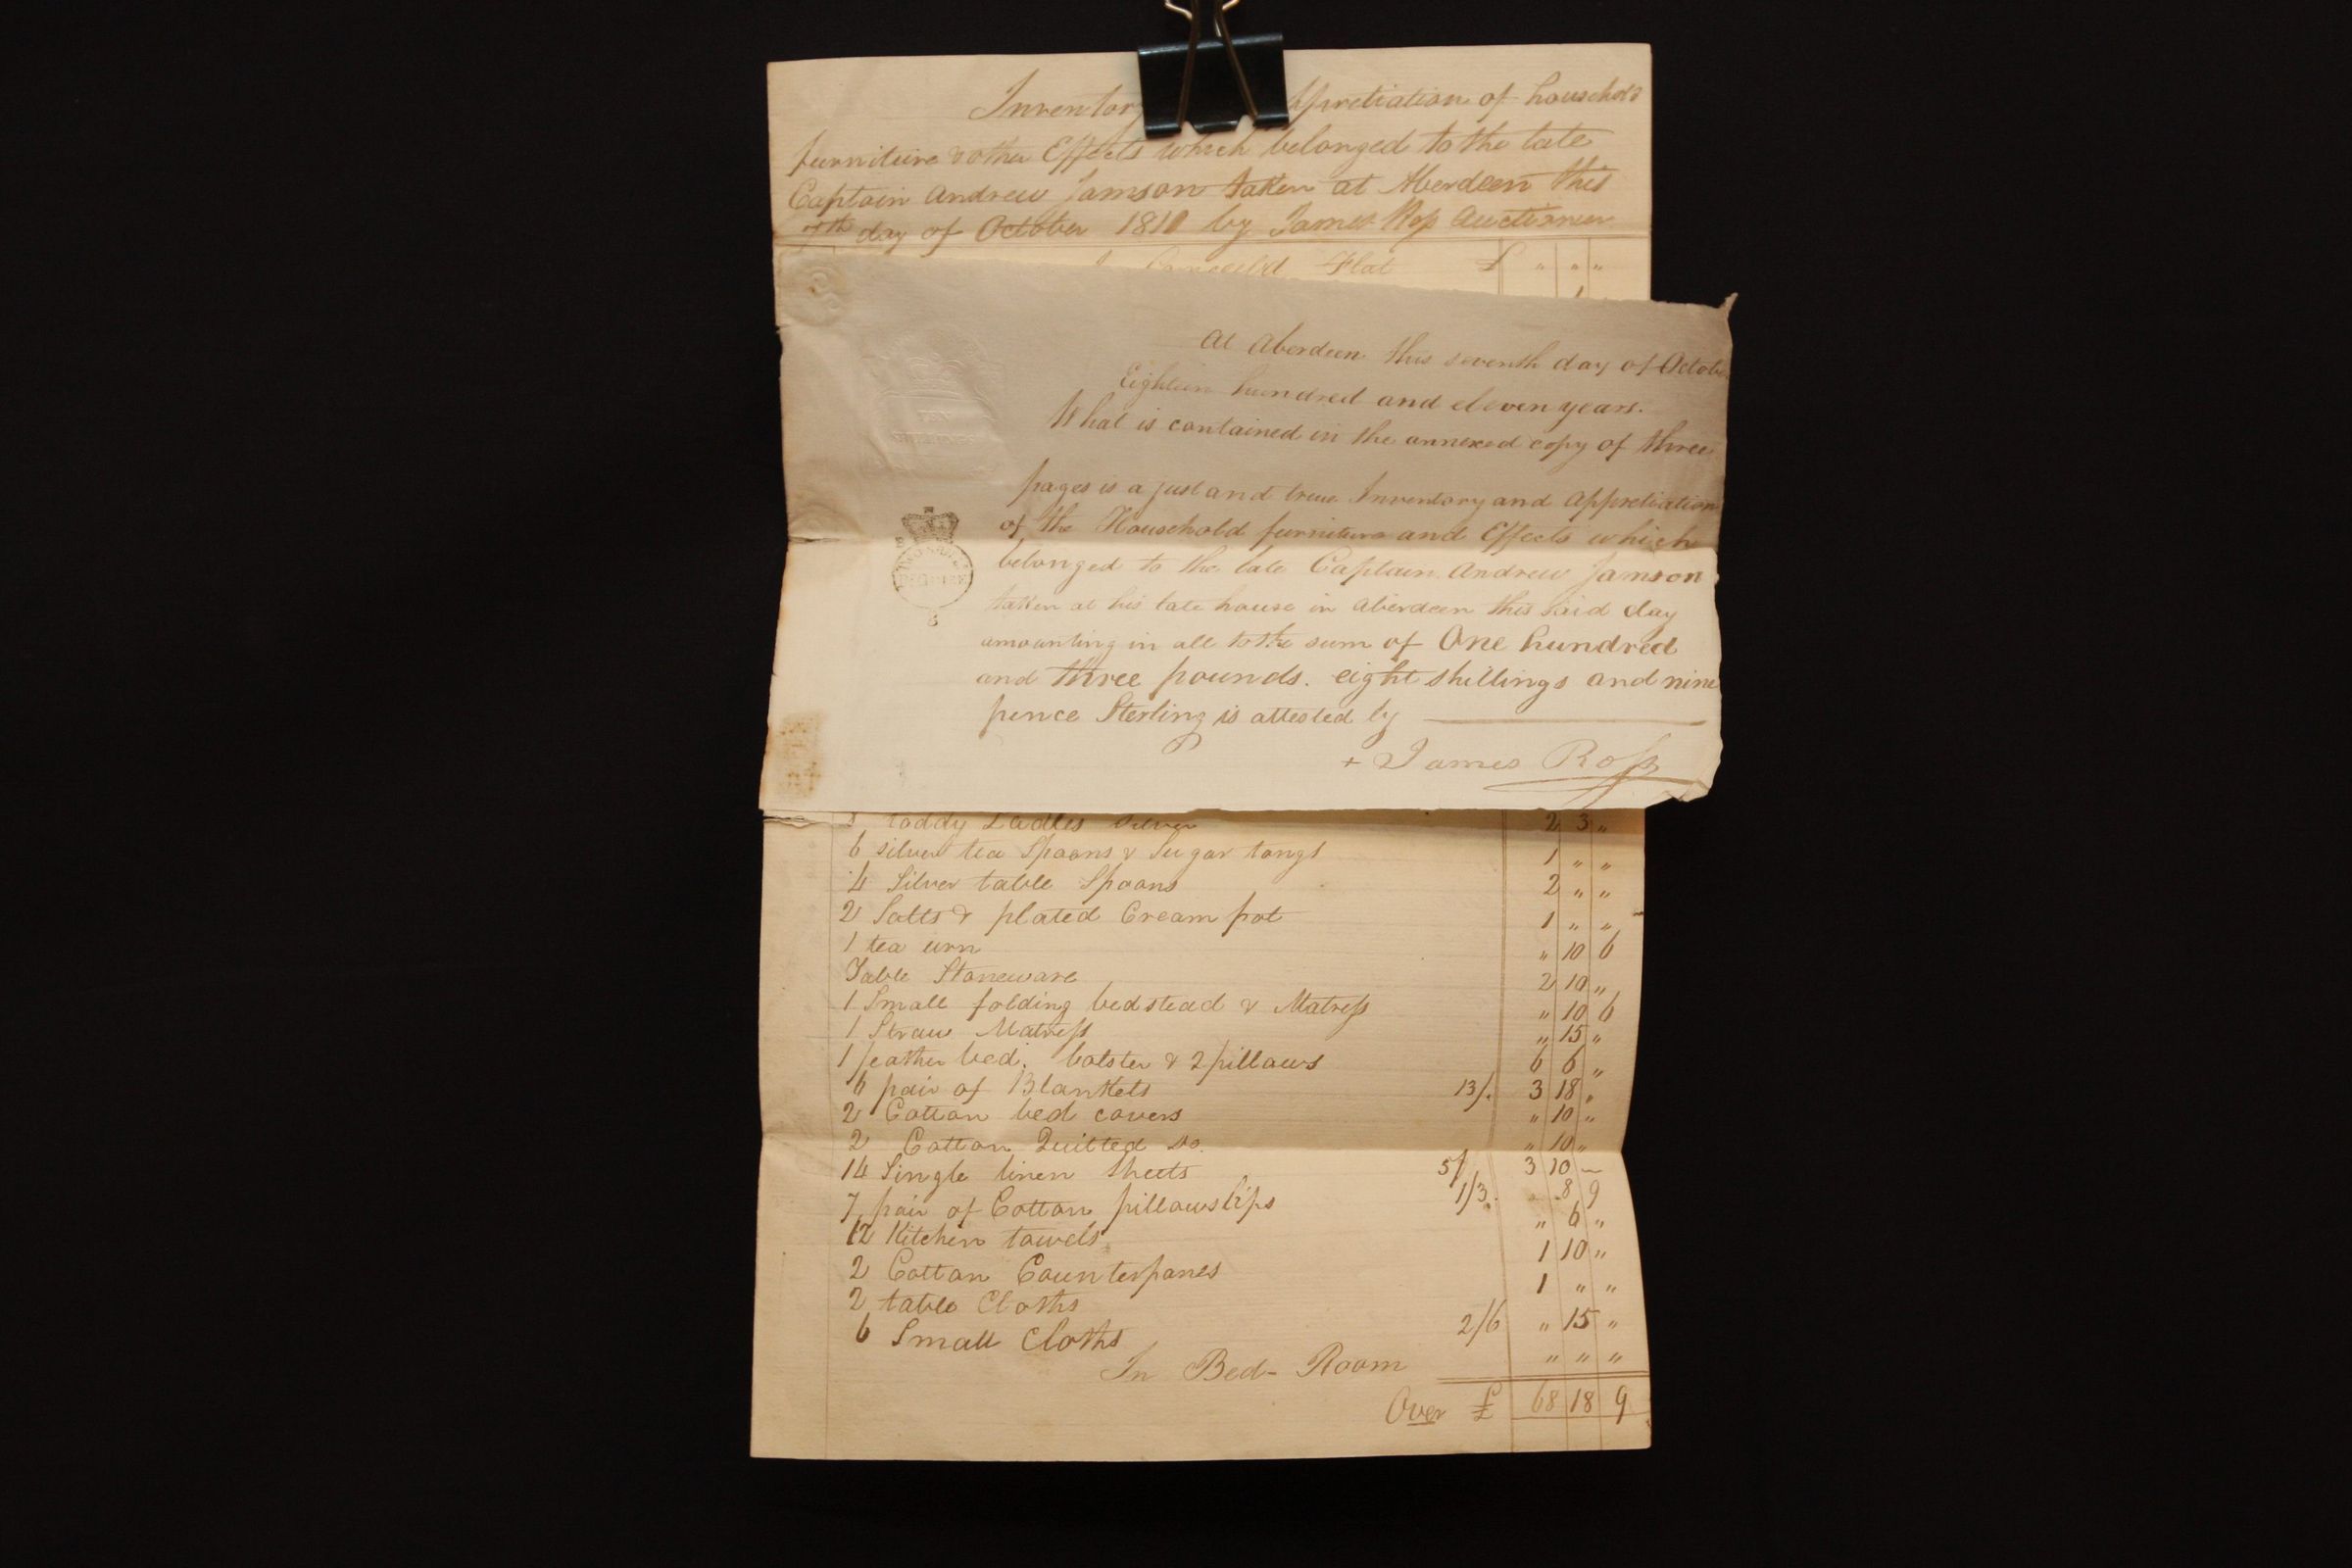 Inventory ppretiation of household
furniture & other Effects which belonged to the late
Captain Andrew Jamson taken at Aberdeen this
7th day of October 1811 by James Ross Auctioneer
Flat £ " " "
At Aberdeen this seventh day of Octobe
Eighteen hundred and eleven years.
What is contained in the annexed copy of three
pages is a just and true Inventory and Appretiation
of the Household furniture and Effects which
belonged to the late Captain Andrew Jamson
taken at his late house in Aberdeen this said day
amounting in all to the sum of One hundred
and three pounds. eight shillings and nine
pence Sterling is attested by
+ James Ross
toddy Ladles Silver 2 3 "
6 silver tea Spoons & Sugar tongs 1 " "
4 Silver table Spoons 2 " "
2 Salts & plated Cream pot 1 " "
1 tea urn " 10 6
Table Stoneware 2 10 "
1 Small folding bedstead & Matress " 10 6
1 Straw Matress " 15 "
1 feather bed, bolster & 2 pillows 6 6 "
6 pair of Blankets 13/. 3 18 "
2 Cotton bed covers " 10 "
2 Cotton Quilted Do. " 10 "
14 Single linen Sheets 5/ 3 10 ~
7 pair of Cotton pillowslips 1/3. 8 9
12 Kitchen towels " 6 "
2 Cotton Counterpanes 1 10 "
2 table Cloths 1 " "
6 Small Cloths 2/6 " 15 "
In Bed-Room " " "
Over £ 68 18 9